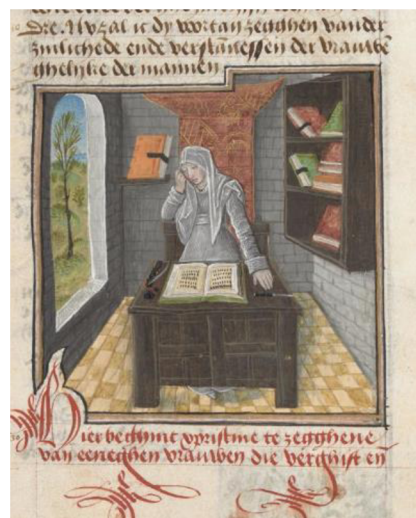 Dre. Nv zal ic dy voortan zegghen vander
zinlichede ende verstanessen der vrauwen
ghelyke der mannen
Hier beghint xpristine te zegghene
van eeneghen vrauwen die verchiert en